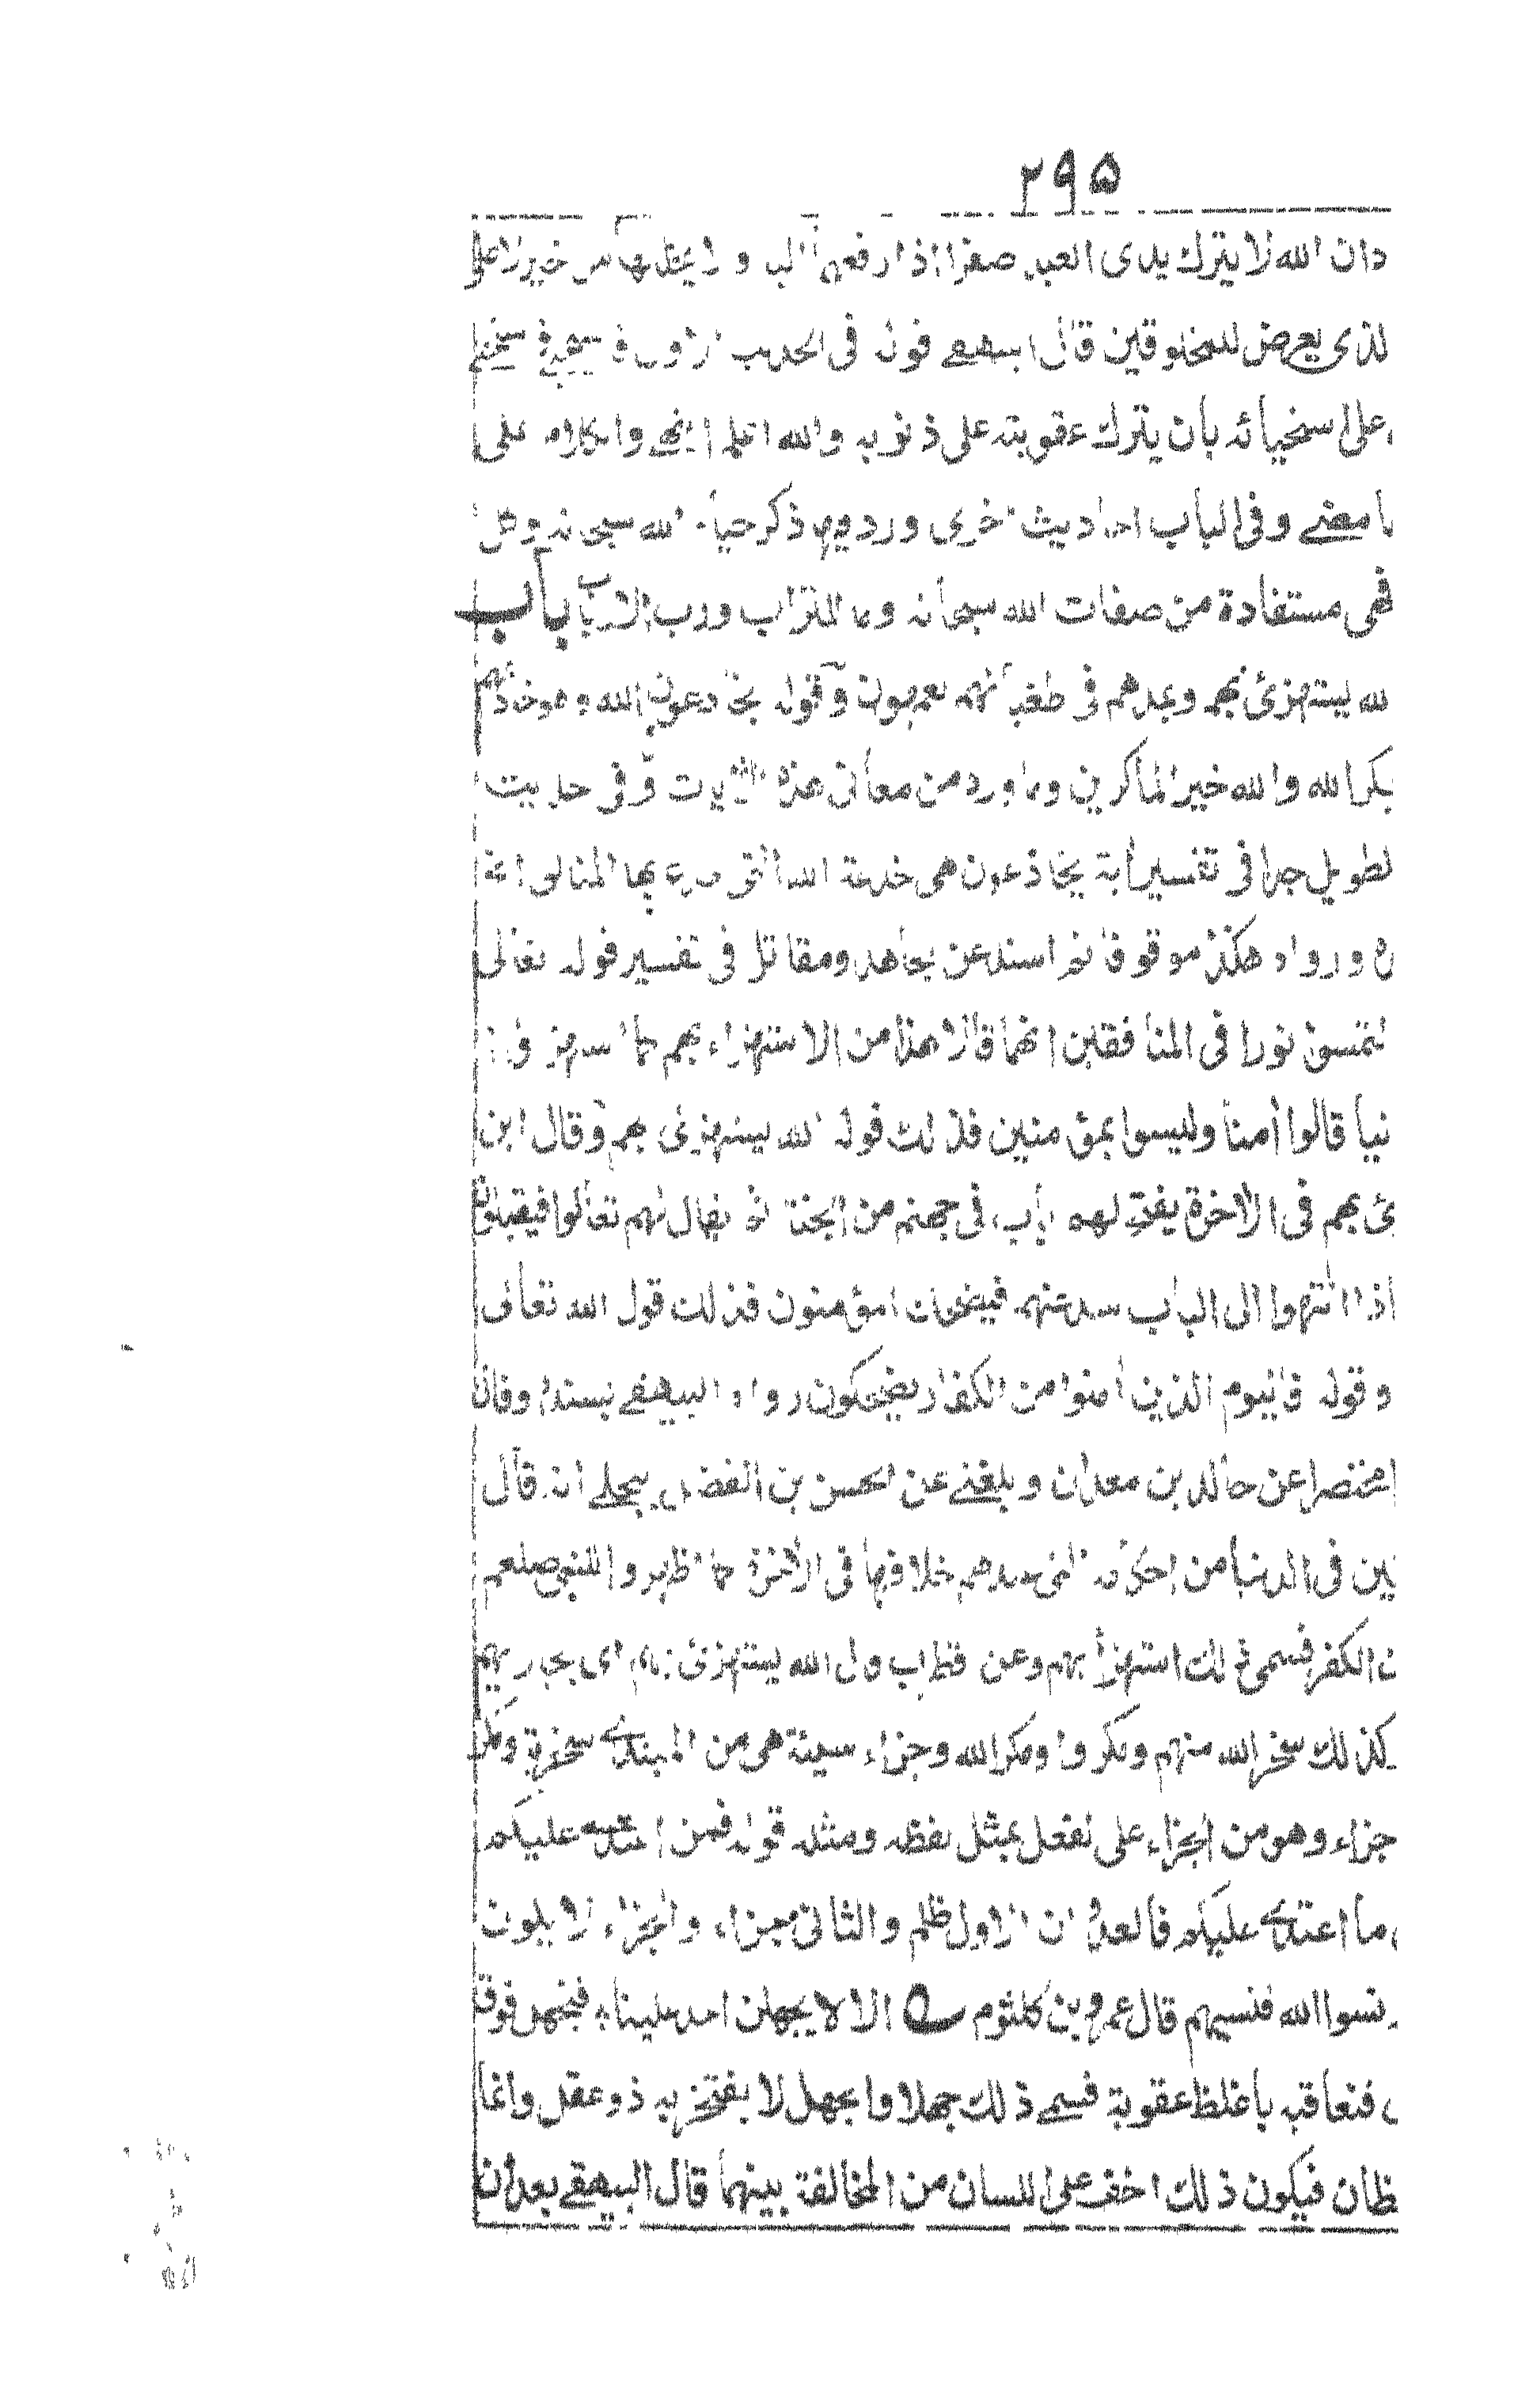 ٢٩٥
دان الله لا يترك يدى العبد صفرا اذا رفعها اليه و لا يخليها من خير لا على
لذى يعرض للمخلوقين قال البيهقى قوله فى الحديث
على سخيائه بان يترك عقوبته على ذنوبه والله اعلم انتهى والكلام على
ما مضى وفى الباب احاديث اخرى ورد فيها ذكر حياء الله سبحانه وهى
فهى مستفادة من صفات الله سبحانه وما للتراب ورب الارباب باب
لله يستهزئ بهم ويمدهم فى طغيانهم يعمهون وقوله يخادعون الله وهو خادعهم
بكر الله والله خير الماكرين وما ورد من معانى هذه الآيات وفى حديث
لطويل جدا فى تفسير آية يخادعون هى خدعة الله التى خدع بها المنافقة
ورواه هكذا موقوفا ثم اسند عن مجاهد ومقاتل فى تفسير قوله تعالى
لتمسوا نورا فى المنافقين انهما قالا هذا من الاستهزاء بهم كما استهزؤا
نيا قالوا آمنا وليسوا بمؤمنين فذلك قوله الله يستهزئ بهم وقال ابن
ئ بهم فى الآخرة يفتح لهم باب فى جهنم من الجنة ثم يقال لهم تعالوا فيقبلون
اذا انتهوا الى الباب سد عنهم فيضحك المؤمنون فذلك قول الله تعالى
وقوله فاليوم الذين آمنوا من الكفار يضحكون رواه البيهقى بسنده وقال
مختصرا عن خالد بن معدان وبلغنى عن الحسن بن الفضل البجلى انه قال
ين فى الدنيا من احكامه التى عندهم خلافها فى الآخرة كما اظهروا للنبى صلعم
ن الكفر فسمى ذلك استهزأ بهم وعن قطرب قال الله يستهزئ بهم اى يجازيهم
كذلك سخر الله منهم ومكروا ومكر الله وجزاء سيئة هى من المبتدى سخرية ومكر
جزاء وهو من الجزاء على الفعل بمثل لفظه ومثله قوله فمن اعتدى عليكم
ما اعتدى عليكم فالعدوان الاول ظلم والثانى جزاء والجزاء لا يكون
نسوا الله فنسيهم قال عمرو بن كلثوم الا لا يجهلن احد علينا فنجهل فوق
فنعاقبه باغلظ عقوبة فسمى ذلك جهلا والجهل لا يفتخر به ذو عقل وانما
ظان فيكون ذلك اخف على اللسان من المخالفة بينهما قال البيهقى بعد ان